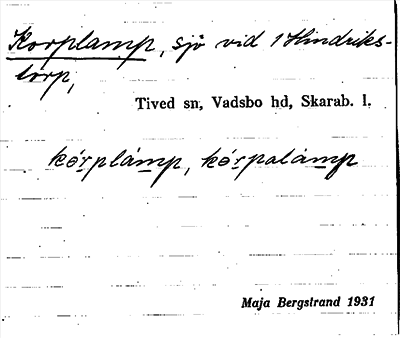 Korplamp, sjö vid 1 Hindriks-
torp,
Tived sn, Vadsbo hd, Skarab. l.
kórplámp, kórpalámp
Maja Bergstrand 1931